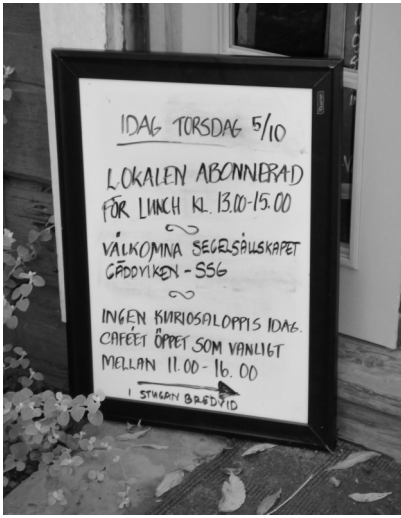 IDAG TORSDAG 5/10
LOKALEN ABONNERAD
FÖR LUNCH KL. 13.00-15.00
VÄLKOMNA SEGELSÄLLSKAPET
GÄDDVIKEN - SSG
INGEN KURIOSALOPPIS IDAG.
CAFÉET ÖPPET SOM VANLIGT
MELLAN 11.00 - 16.00
I STUGAN BREDVID